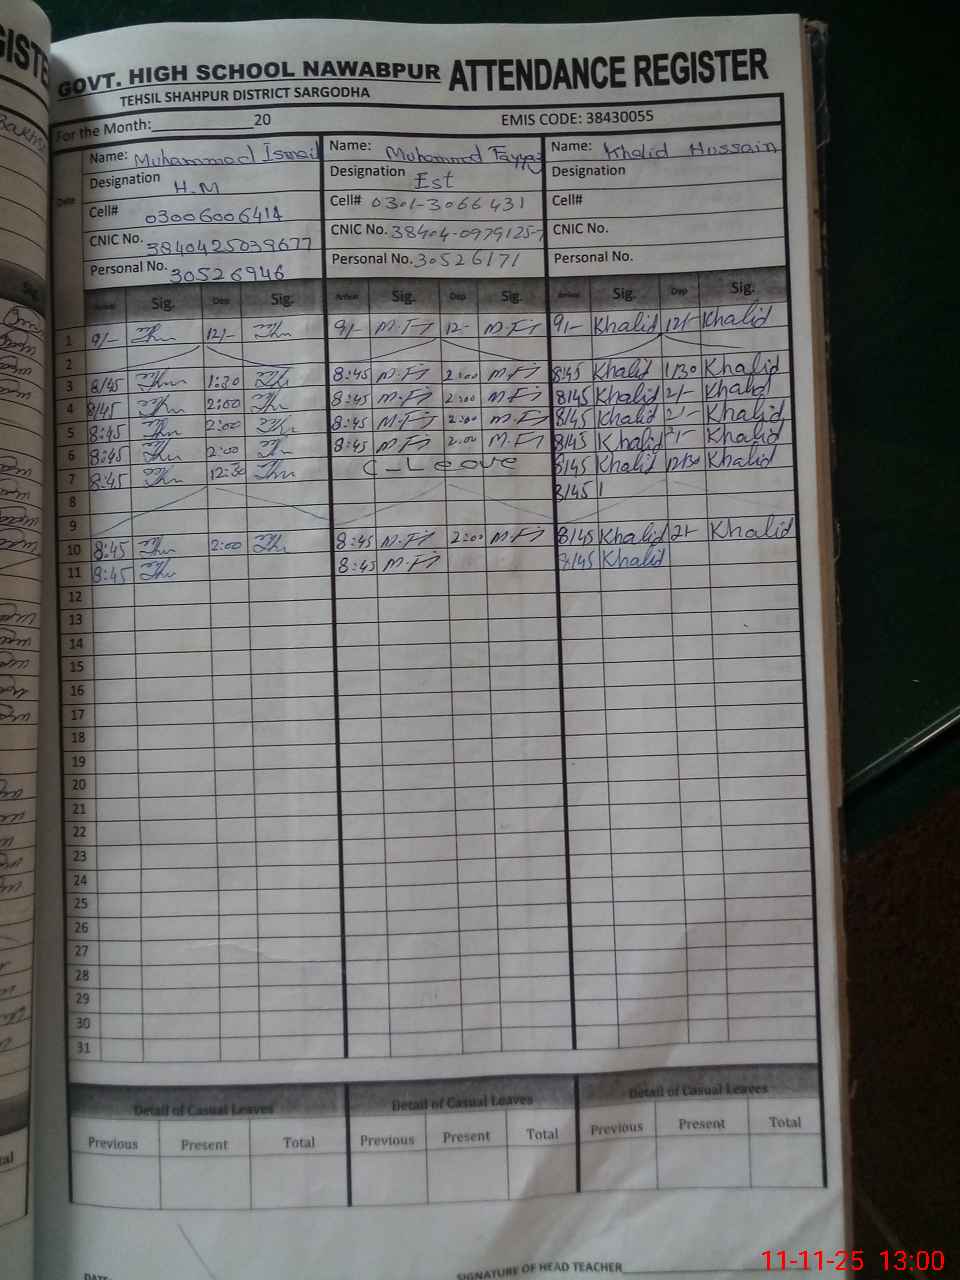 GISTE
GOVT. HIGH SCHOOL NAWABPUR ATTENDANCE REGISTER
TEHSIL SHAHPUR DISTRICT SARGODHA
For the Month:____________20 EMIS CODE: 38430055
Date
Name: Muhammad Ismail Name: Muhammad Fayyaz Name: Khalid Hussain
Designation H.M Designation Est Designation
Cell# 03006006414 Cell# 0301-3066431 Cell#
CNIC No. 3840425039677 CNIC No. 38404-0979125-7 CNIC No.
Personal No. 30526946 Personal No. 30526171 Personal No.
Sig.
Arrival Sig. Dep Sig. Arrival Sig. Dep Sig. Arrival Sig. Dep Sig.
1 9/- 12/- 9/- 12/- 9/- Khalid 12/- Khalid
2
3 8/45 1:30 8:45 2:00 8/45 Khalid 1/30 Khalid
4 8/45 2:00 8:45 2:00 8/45 Khalid 2/- Khalid
5 8:45 2:00 8:45 2:00 8/45 Khalid 2/- Khalid
6 8:45 2:00 8:45 2:00 8/45 Khalid 2/- Khalid
7 8:45 12:30 C-Leave 8/45 Khalid 12/30 Khalid
8 8/45
9
10 8:45 2:00 8:45 2:00 8/45 Khalid 2/- Khalid
11 8:45 8:45 8/45 Khalid
12
13
14
15
16
17
18
19
20
21
22
23
24
25
26
27
28
29
30
31
Detail of Casual Leaves Detail of Casual Leaves Detail of Casual Leaves
Previous Present Total Previous Present Total Previous Present Total
DATE SIGNATURE OF HEAD TEACHER
11-11-25 13:00